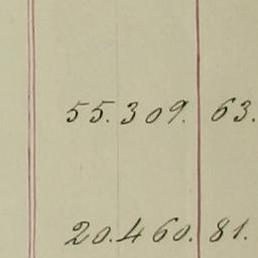 55.309. 63.
20.460. 81.